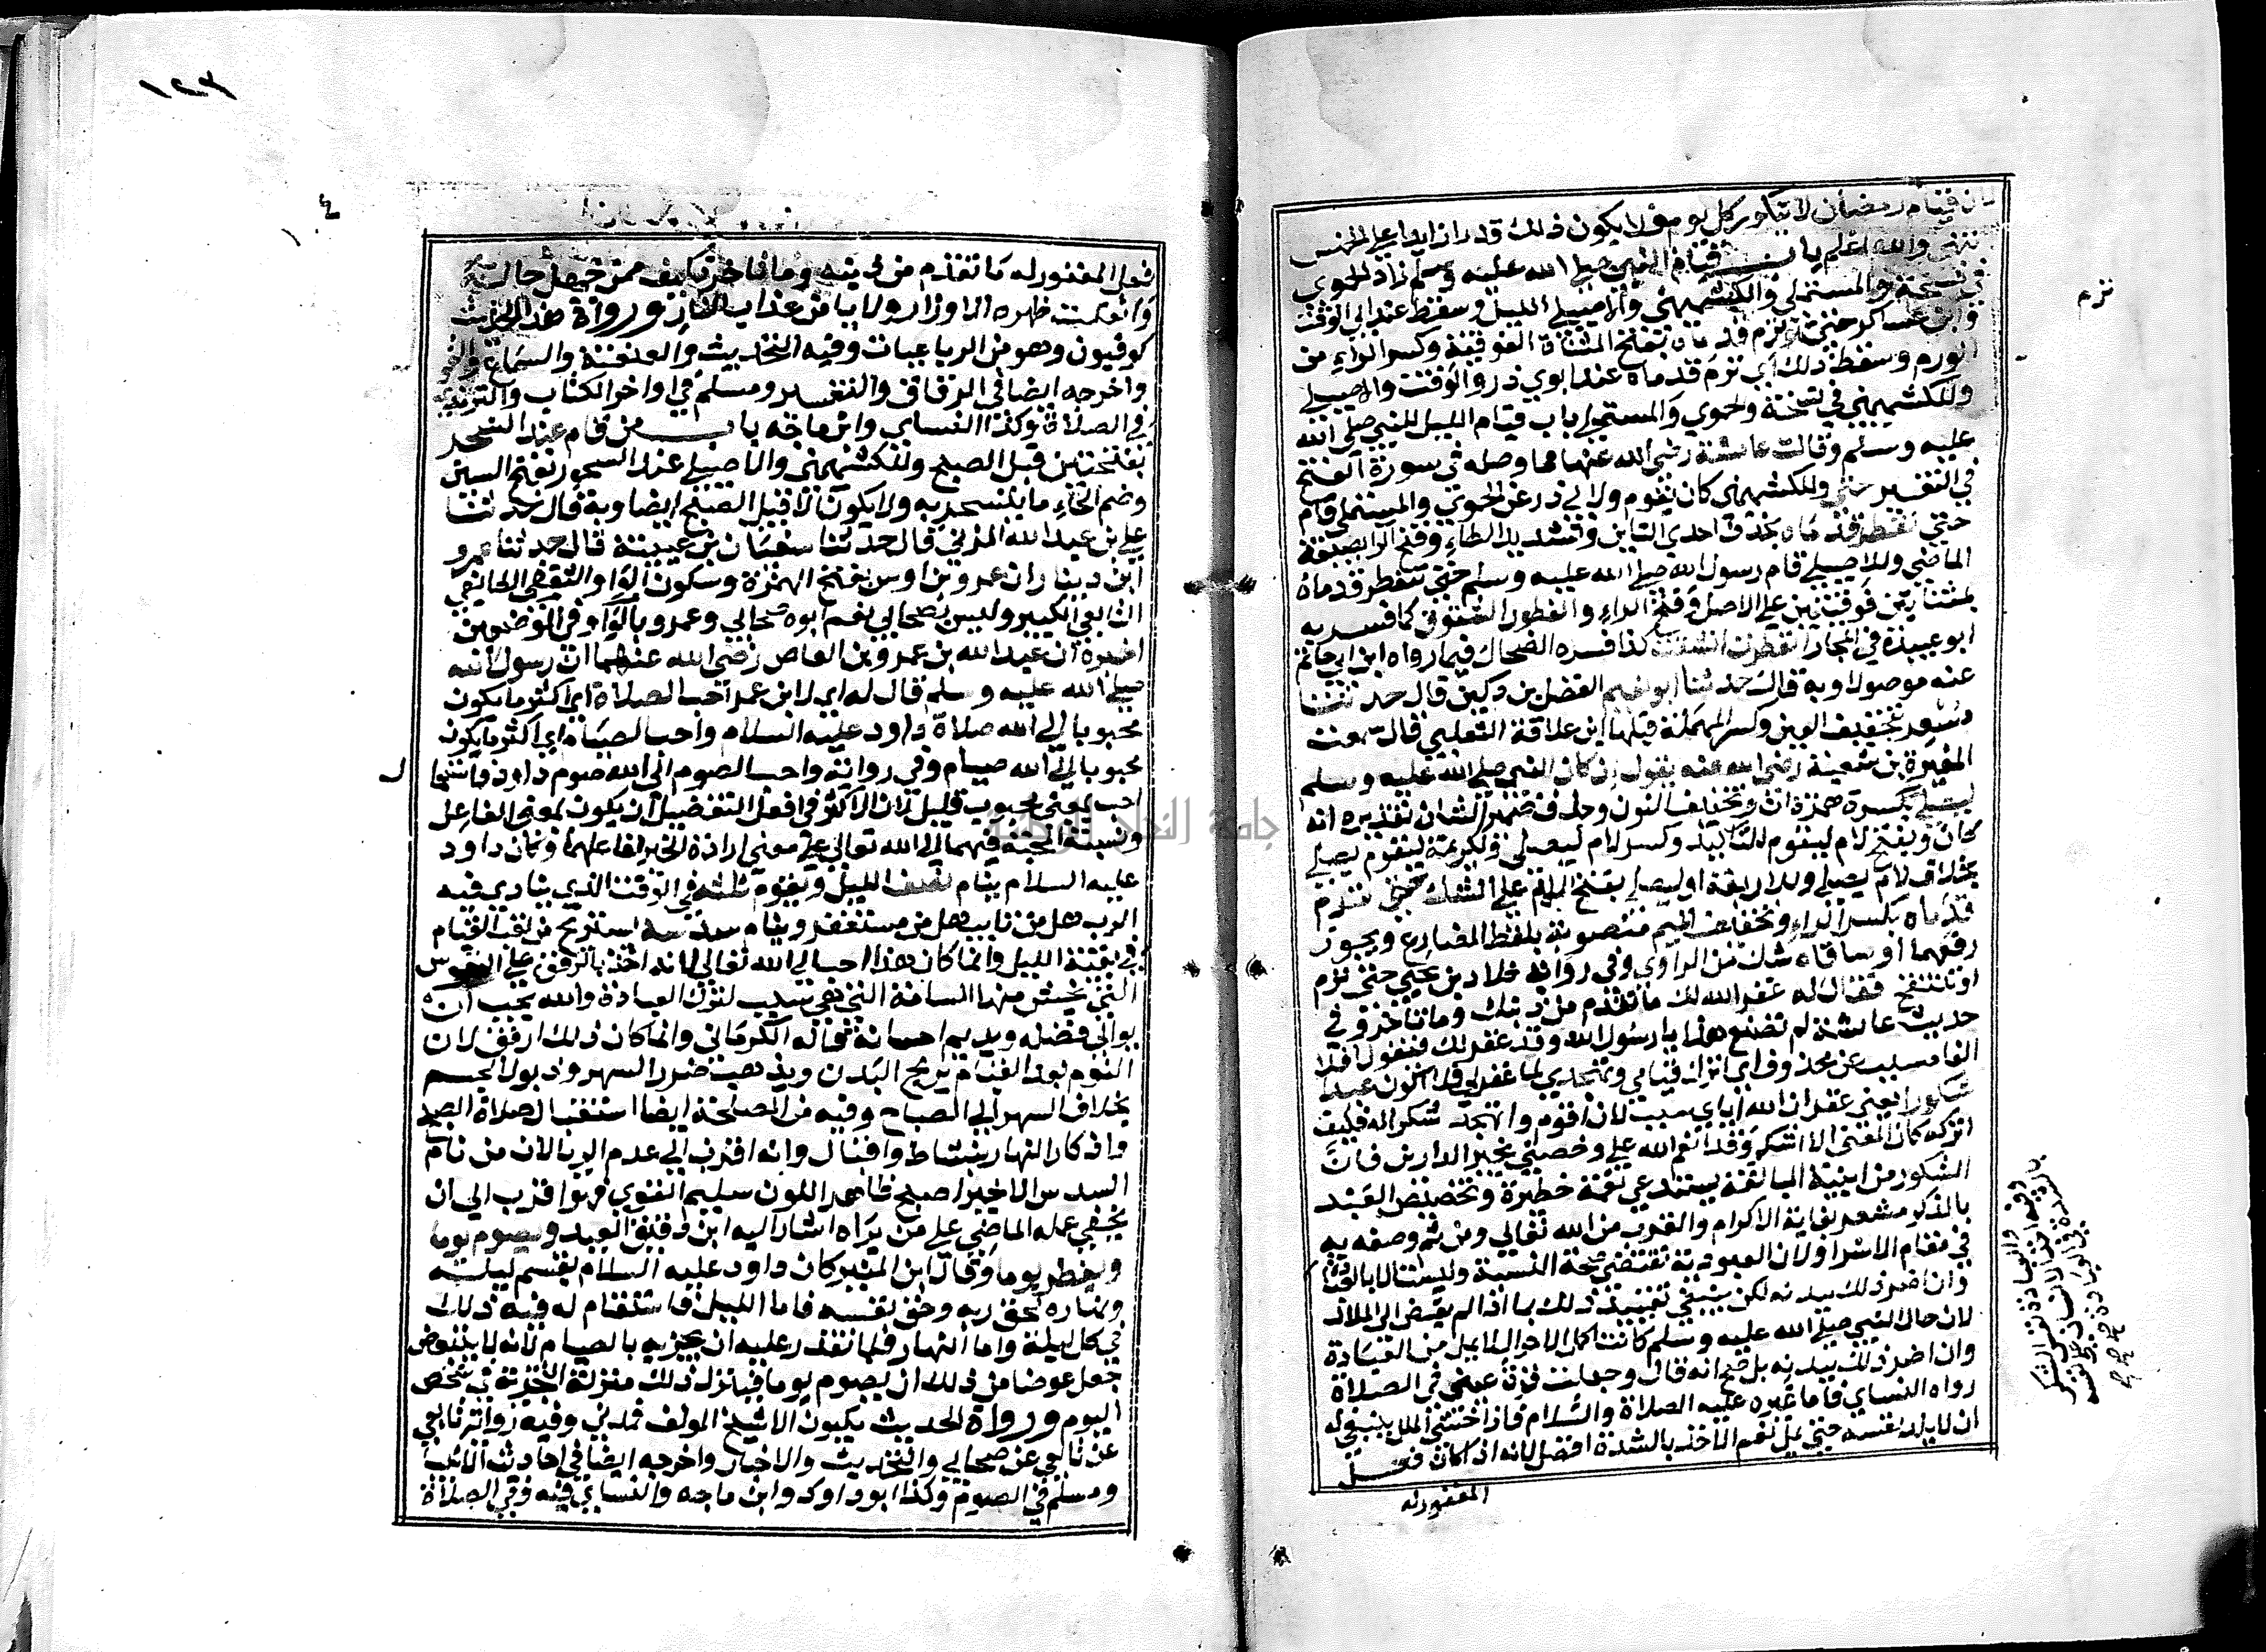 لان قيام رمضان لا يتكرر كل يوم فلا يكون ذلك قدرا زايدا على الخمس
والله اعلم باب قيام النبي صلى الله عليه وسلم زاد الحموي
في نسخة والمستملي والكشميهني والاصيلي الليل وسقط عند ابي الوقت
وابن عساكر حتى ترم قدماه بفتح المثناة الفوقية وكسر الراء من
الورم وسقط ذلك اي ترم قدماه عند ابوي ذر والوقت والاصيلي
وللكشميهني في نسخة والحموي والمستملي باب قيام الليل للنبي صلى الله
عليه وسلم وقالت عايشة رضي الله عنها مما وصله في سورة الفتح
في التفسير حتى وللكشميهني كان يقوم ولابي ذر عن الحموي والمستملي قام
حتى تفطر قدماه بحذف احدى التاين وتشديد الطاء وفتح الراء بصيغة
الماضي وللاصيلي قام رسول الله صلى الله عليه وسلم حتى تتفطر قدماه
بمثناتين فوقيتين على الاصل وفتح الراء والفطور الشقوق كما فسره به
ابو عبيدة في المجاز انفطرت انشقت كذا فسره الضحاك فيما رواه ابن ابي حاتم
عنه موصولا وبه قال حدثنا ابو نعيم الفضل بن دكين قال حدثنا
مسعر بتخفيف العين وكسر المهملة قبلها ابن علاقة الثعلبي قال سمعت
المغيرة بن شعبة رضي الله عنه يقول ان كان النبي صلى الله عليه وسلم
ليصلي بكسرة همزة ان وتخفيف النون وحذف ضمير الشان تقديره انه
كان وبفتح لام ليقوم للتاكيد وكسر لام ليصلي ولكريمة ليقوم يصلي
بحذف لام يصلي وللاربعة او ليصلي بفتح اللام على الشك حتى ترم
قدماه بكسر الراء وتخفيف الميم منصوبة بلفظ المضارع ويجوز
رفعها او ساقاه شك من الراوي وفي رواية خلاد بن يحيى حتى ترم
او تنتفخ فقال له غفر الله لك ما تقدم من ذنبك وما تاخر وفي
حديث عايشة لم تصنع هذا يا رسول الله وقد غفر لك فيقول افلا
الفا مسبب عن محذوف اي اترك قيامي وتهجدي لما غفر لي فلا اكون عبدا
شكورا يعني غفران الله اياي سبب لان اقوم واتهجد شكرا له فكيف
اتركه كان المعنى الا اشكر وقد انعم الله علي وخصني بخير الدارين فان
الشكور من ابنية المبالغة يستدعي نعمة خطيرة وتخصيص العبد
بالذكر مشعر بغاية الاكرام والقرب من الله تعالى ومن ثم وصفه به
في مقام الاسرا ولان العبودية تقتضي صحة النسبة وليست الا بالعبادة
وان اضر ذلك ببدنه لكن ينبغي تقييد ذلك بما اذا لم يفض الى الملال
لان حال النبي صلى الله عليه وسلم كانت اكمل الاحوال لا يمل من العبادة
وان اضر ذلك ببدنه بل صح انه قال وجعلت قرة عيني في الصلاة
رواه النساي فاما غيره عليه الصلاة والسلام فاذا خشي الملل ينبغي له
ان لا يكد نفسه حتى يمل نعم الاخذ بالشدة افضل لانه اذا كان فعل
المغفور له
ترم
١٢٣
١٠٤
فعل المغفور له ما تقدم من ذنبه وما تاخر فكيف من جهل حاله
واثقلت ظهره الاوزار ولا يامن عذاب النار ورواة هذا الحديث
كوفيون وهو من الرباعيات وفيه التحديث والعنعنة والسماع والقول
واخرجه ايضا في الرقاق والتفسير ومسلم في اواخر الكتاب والترمذي
في الصلاة وكذا النساي وابن ماجة باب من نام عند السحر
بفتحتين قبل الصبح وللكشميهني والاصيلي عند السحور بفتح السين
وضم الحاء ما يتسحر به ولا يكون الا قبيل الصبح ايضا وبه قال حدثنا
علي بن عبد الله المديني قال حدثنا سفيان بن عيينة قال حدثنا عمرو
ابن دينار ان عمرو بن اوس بفتح الهمزة وسكون الواو الثقفي الطايفي
التابعي الكبير وليس بصحابي نعم ابوه صحابي وعمرو بالواو في الموضعين
اخبره ان عبد الله بن عمرو بن العاص رضي الله عنهما ان رسول الله
صلى الله عليه وسلم قال له اي لابن عمرو احب الصلاة اي اكثر ما يكون
محبوبا الى الله صلاة داود عليه السلام واحب الصيام اي اكثر ما يكون
محبوبا الى الله صيام وفي رواية واحب الصوم الى الله صوم داود واستعمال
احب بمعنى محبوب قليل لان الاكثر في افعل التفضيل ان يكون بمعنى الفاعل
ونسبة المحبة فيهما الى الله تعالى على معنى ارادة الخير لفاعلهما وكان داود
عليه السلام ينام نصف الليل ويقوم ثلثه في الوقت الذي ينادي فيه
الرب هل من تايب هل من مستغفر وينام سدسه ليستريح من نصب القيام
في بقية الليل وانما كان هذا احب الى الله تعالى لانه اخذ بالرفق على النفوس
التي يخشى منها السامة التي هي سبب لترك العبادة والله يحب ان
يوالي فضله ويديم احسانه قاله الكرماني وانما كان ذلك ارفق لان
النوم بعد القيام يريح البدن ويذهب ضرر السهر وذبول الجسم
بخلاف السهر الى الصباح وفيه من المصلحة ايضا استقبال صلاة الصبح
واذكار النهار بنشاط واقبال وانه اقرب الى عدم الريا لان من نام
السدس الاخير اصبح ظاهر اللون سليم القوي فهو اقرب الى ان
يخفي عمله الماضي على من يراه اشار اليه ابن دقيق العيد ويصوم يوما
ويفطر يوما وقال ابن المنير كان داود عليه السلام يقسم ليله
ونهاره لحق ربه وحق نفسه فاما الليل فاستقام له فيه ذلك
في كل ليلة واما النهار فلما تعذر عليه ان يجزيه بالصيام لانه لا يتبعض
جعل عوضا من ذلك ان يصوم يوما فيتنزل ذلك منزلة التجزية في شخص
اليوم ورواة الحديث مكيون الا شيخ المولف فمدني وفيه رواية تابعي
عن تابعي عن صحابي والتحديث والاخبار واخرجه ايضا في احاديث الانبيا
ومسلم في الصوم وكذا ابو داود وابن ماجه والنساي فيه وفي الصلاة
جامعة النجاح الوطنية